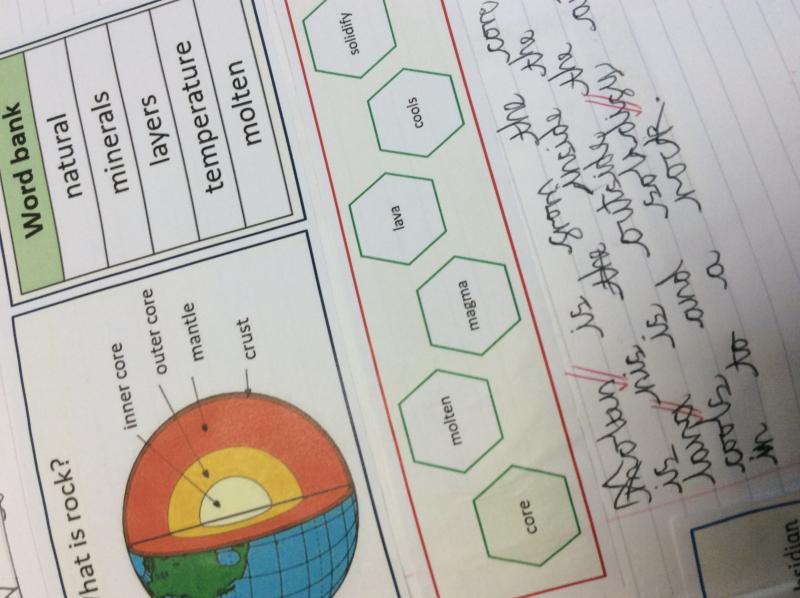 What is rock?
inner core
outer core
mantle
crust
Word bank
natural
minerals
layers
temperature
molten
core
molten
magma
lava
cools
solidify
Moltan is from the core
is the inside the
larva is outside the
cools and
in to a rock.